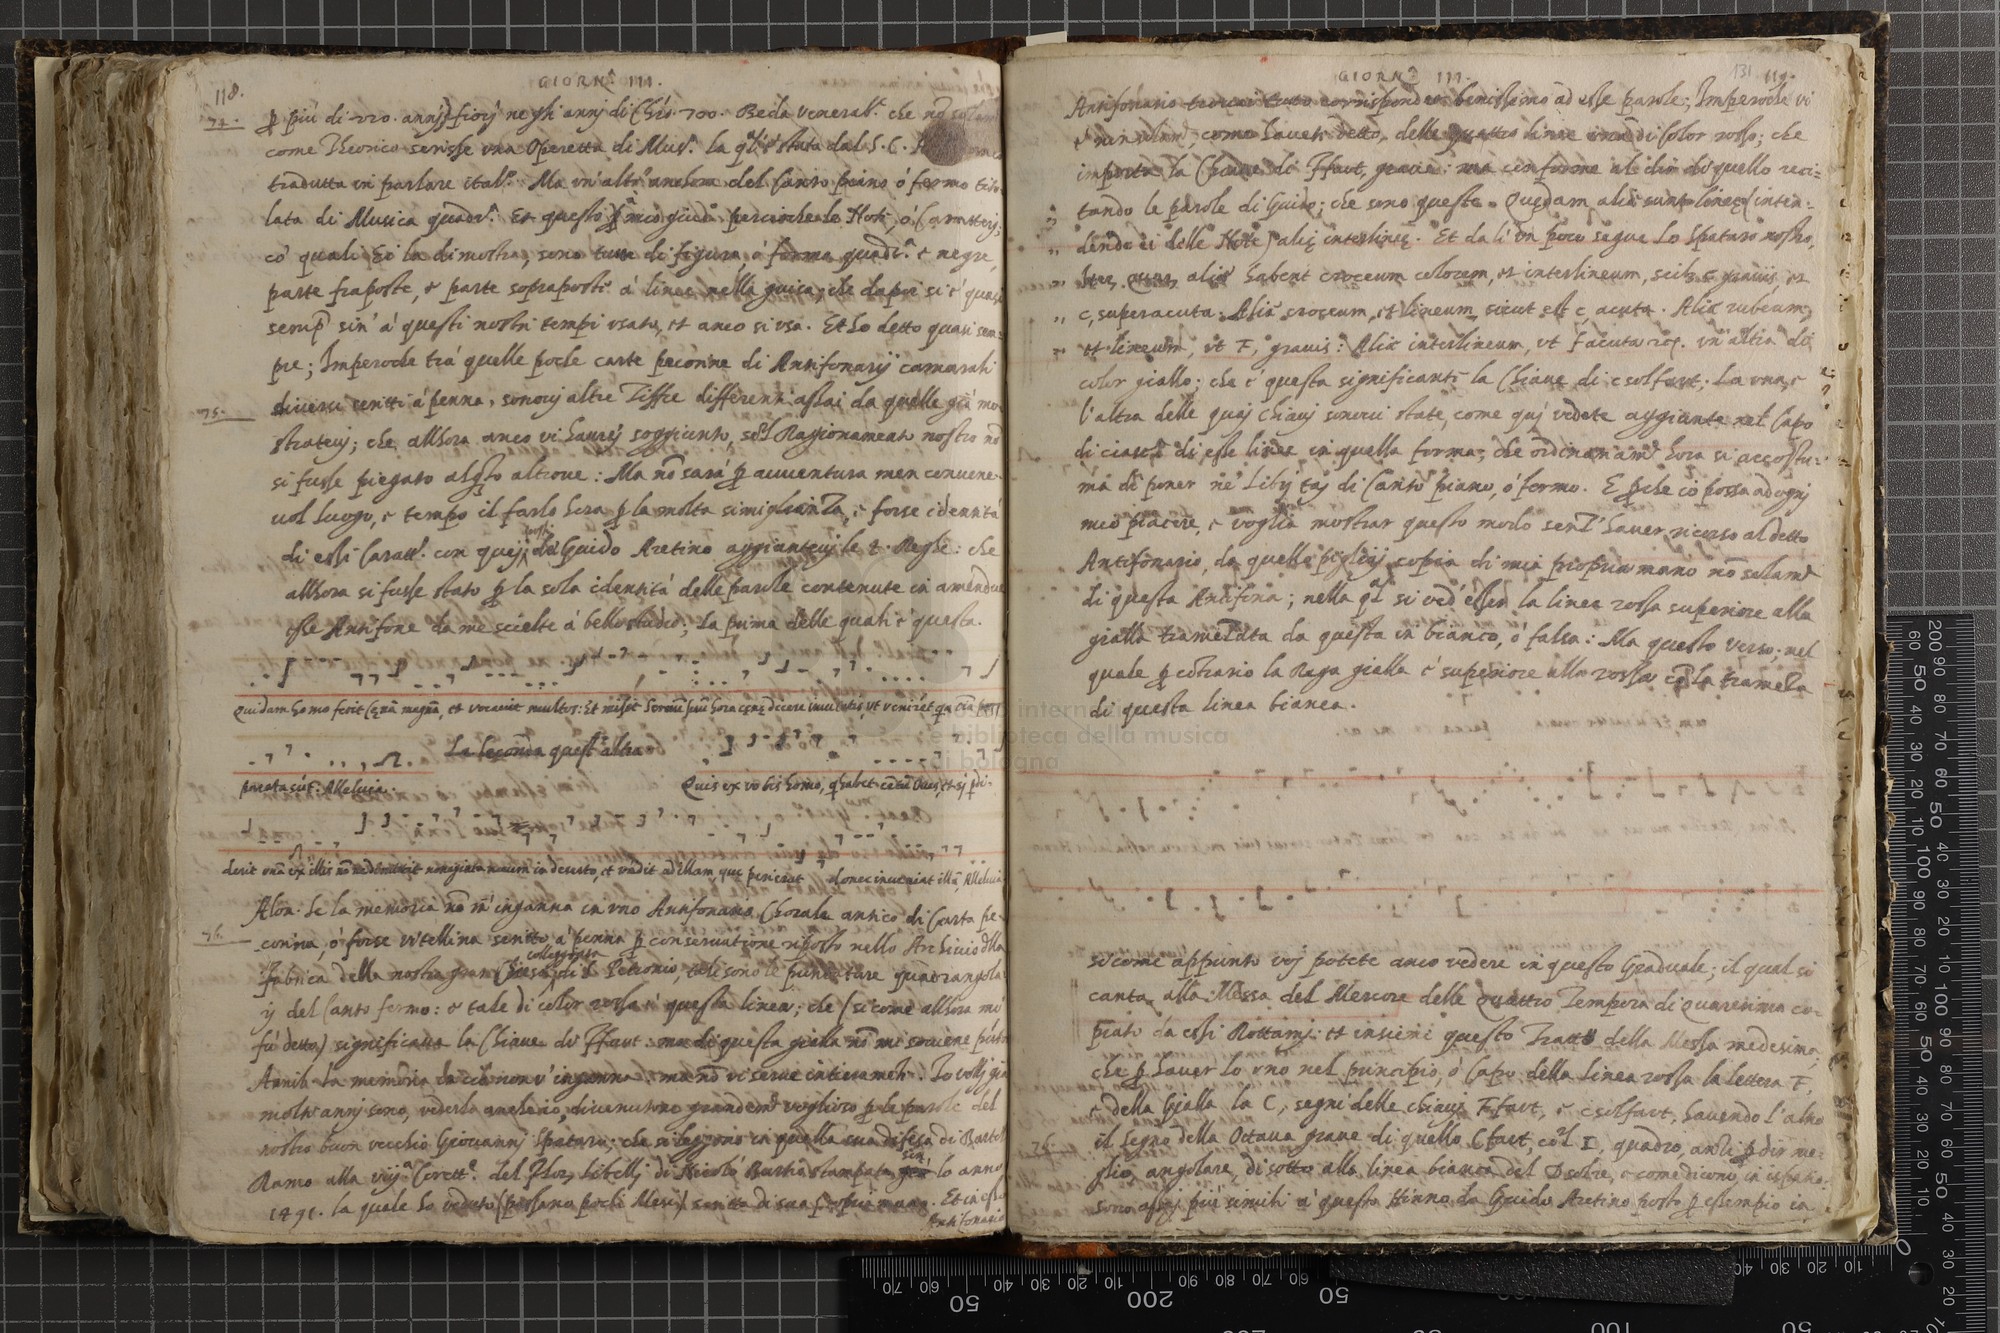 118.
GIORN.ª III.
74.
ꝑ più di 220. annj) fiorì negli annj di Chr̃o 700. Beda Venerab.e che nõ
come Theorico scrisse una Operetta di Mus.ª la q̃l' è stata dal S. C.
tradutta in parlare ital.º Ma un'altrª anchora del Canto piano ó fermo tito
lata di Musica quadr.ª Et questo ꝑ mio giud.º percioche le Note, ó Caratterj,
cõ quali Ei la dimostra, sono tutte di figura, ó forma quadr.ª e negre,
parte fraposte, e parte sopraposte á linee nella guisa, che dapoi si è quasi
semp̃ sin' á questi nostri tempi usata, et anco si usa. Et ho detto quasi sem=
pre; Imperoche trá quelle poche carte pecorine di Antifonarij camaranti
75.
diversi scritti á penna, sonovj altre Ziffre differenti assai da quelle giá mo=
stratevj; che allhora anco vi haurej soggiunto, se'l Ragionamento nostro nõ
si fusse piegato alq̃to altrove: Ma nõ sará ꝑ avventura men convene=
uol luogo, e tempo il farlo hora ꝑ la molta simiglianza, e forse identitá
di essi Caratt.i con quej posti da Guido Aretino aggiuntevj le 2. Righe: che
allhora si fusse stato ꝑ la sola identitá delle parole contenute in amendue
esse Antifone da me scielte á bello studio; La prima delle quali è questa.
Quidam homo fecit cęnã magnã, et vocavit multos: Et misit servũ suũ hora cęnę dicere invitatis, ut venirẽt q̃a oĩa
parata sũt. Alleluia.
La seconda quest'altra
Quis ex vobis homo, q̃ habet centũ Oves, et sj ꝑdi-
derit unã ex illis nõ ne dimittit nonaginta novem in deserto, et vadit ad illam, quę perierat donec inveniat illã, Alleluia
Alon. Se la memoria nõ m'inganna in uno Antifonario Chorale antico di Carta pe=
76.
corina, ó forse vitellina scritto á penna ꝑ conservatione riposto nello Archivio dlla
fabrica della nostra gran Chiesa collegiata di S. Petronio, tali sono le puntature quadrangola
ij del Canto fermo: e tale di color rosso è questa linea; che (sicome allhora mi
fú detto) significava la Chiave di Ffaut: ma di questa gialla nõ mi soviene
Annib. La memoria in ciò non v'inganna: ma nõ vi serve intieramēte. Io volli giá
molti annj sono, vederlo anch'io, divenutone grandem.te voglioso ꝑ le parole del
nostro buon vecchio Giovannj Spataro; che si leggono in quella sua difesa di Bartol.
Ramo alla vijª Corett.e del Flos libellj di Nicoló Burtio stampata sin lo anno
1491. la quale ho veduto (possono pochi Mesi) scritta di sua propria mano. Et in esso
Antifonario
GIORN.ª III.
131 119.
Antifonario trovai tutto corrispondere benissimo ad esse parole; Imperoche vi
è non solam.te, come havete detto, delle quattro linee una di color rosso; che
importa la Chiave di Ffaut, grave: ma conforme al dir di quello reci=
tando le parole di Guido; che sono queste. Quędam alię sunt lineę (inten=
dendo ei delle Note) alię interlineę. Et da lí un poco segue lo Spataro nostro,
alię habent croceum colorem, et interlineum, c gravis, et
c, superacuta. Alię croceum, et lineum, sicut est c acuta. Alię rubeum,
et lineum, ut F, gravis: Alię interlineum, ut f acuta un'altra di
color giallo; che è questa significante la Chiave di c solfaut. La una, e
l'altra delle quaj Chiavj sonovi state, come quj vedete aggiunte nel Capo
di ciascª di esse linee in quella forma; che ordinariam.te hora si accostu=
ma di poner ne' Librj taj di Canto piano, ó fermo. E ꝑche io possa ad ognj
mio piacere, e voglia mostrar questo modo senz'haver ricorso al detto
Antifonario, da quello pigliaj copia di mia propria mano nõ solam.te
di questa Antifona; nella q̃l si ved'esser la linea rossa superiore alla
gialla tramezata da questa in bianco, ó falsa: Ma questo verso; nel
quale ꝑ cõtrario la Riga gialla è superiore alla rossa cõ la trameza
di questa linea bianca.
si come appunto voj potete anco vedere in questo Graduale; il qual si
canta alla Messa del Mercore delle Quattro Tempora di Quaresima co=
piato da essi Rottamj: et insieme questo Tratto della Messa medesima,
che ꝑ haver lo uno nel principio, ó Capo della linea rossa la lettera F,
e della Gialla la C, segni delle chiavj Ffaut, e c solfaut, havendo l'altro
76.
il segno della Ottava grave di quello Cfaut, quadro, anzi ꝑ dir me=
glio, angolare, di sotto alla linea bianca del Dsolre, e come dicono, in ispatio:
sono assaj piú simili á questo Hinno da Guido Aretino posto ꝑ essempio in